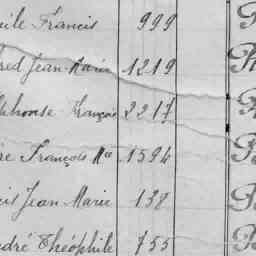 ile Francis 999
red Jean Marie 1219
phonse François 2217
re François Mie 1594
is Jean Marie 138
dré Théophile 755